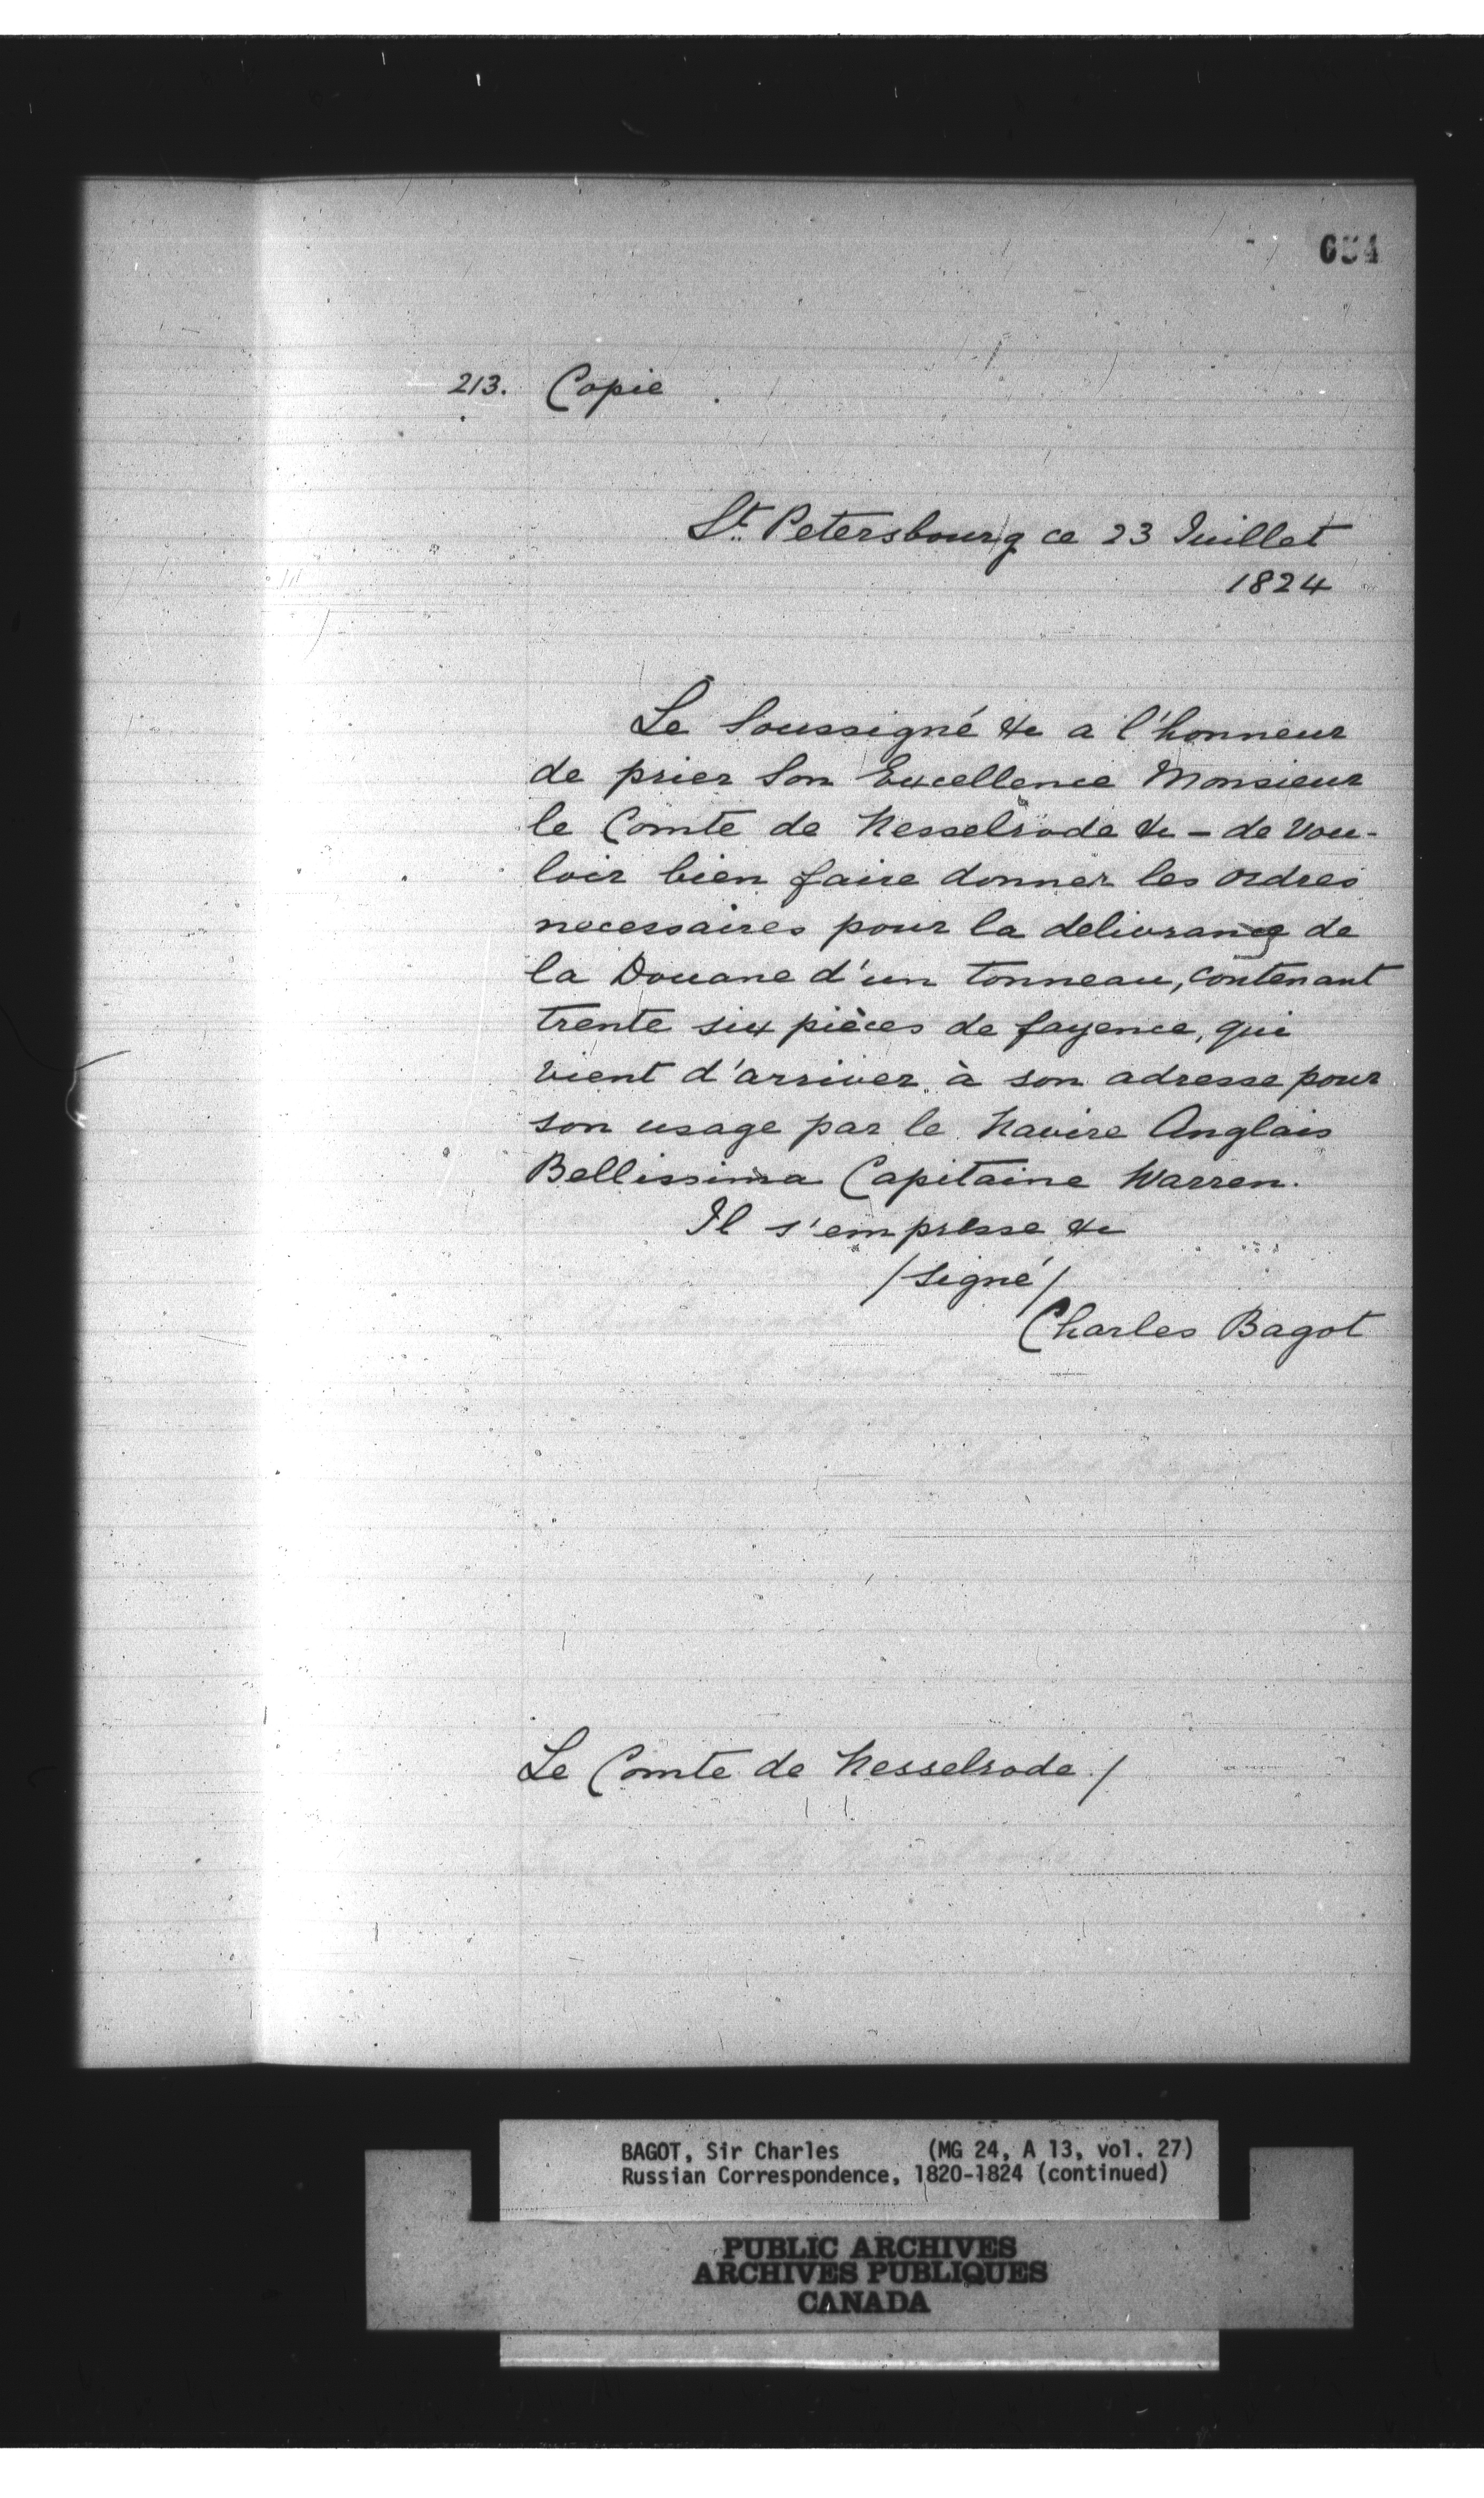 654
213. Copie
St. Petersbourg ce 23 Juillet
1824
Le Soussigné &c a l'honneur
de prier Son Excellence Monsieur
le Comte de Nesselrode &c - de vou-
loir bien faire donner les ordres
necessaires pour la delivrance de
la Douane d'un tonneau, contenant
trente six pièces de fayence, qui
vient d'arriver à son adresse pour
son usage par le Navire Anglais
Bellissima Capitaine Warren.
Il s'empresse &c
/signé/
Charles Bagot
Le Comte de Nesselrode /
BAGOT, Sir Charles (MG 24, A 13, vol. 27)
Russian Correspondence, 1820-1824 (continued)
PUBLIC ARCHIVES
ARCHIVES PUBLIQUES
CANADA